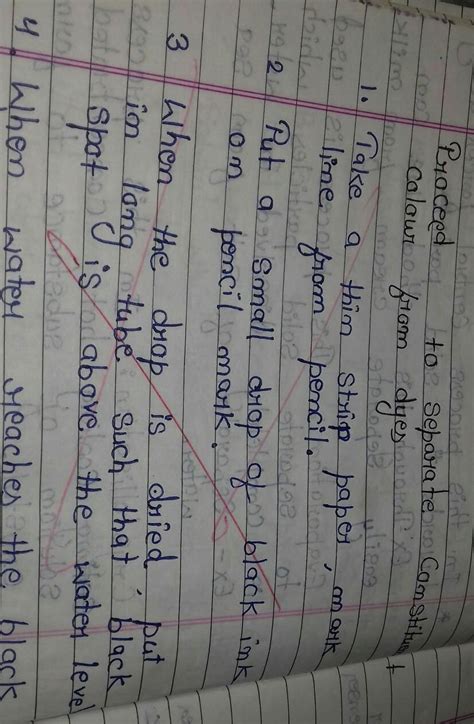 Proceed to separate Constituent
colour from dyes
1. Take a thin strip paper, mark
line from pencil.
2 Put a small drop of black ink
on pencil mark.
3 When the drop is dried, put
in long tube such that black
spot is above the water level
4. When water reaches the black